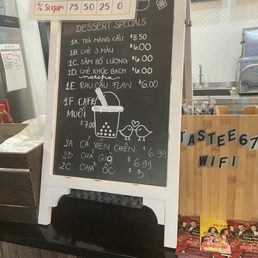 % Sugar 75 50 25 0
DESSERT SPECIALS
1A. TRÀ MÃNG CẦU $8.50
1B. CHÈ 3 MÀU $6.00
1C. SÂM BỔ LƯỢNG $6.00
1D. CHÈ KHÚC BẠCH $6.00
matcha
1E. RAU CÂU FLAN $6.00
1F. CAFE
MUỐI
$7.00
2A CÁ VIÊN CHIÊN $6.99
2B CHẢ GIÒ $6.99
2C CHẢ ỐC
TASTEE67
WIFI